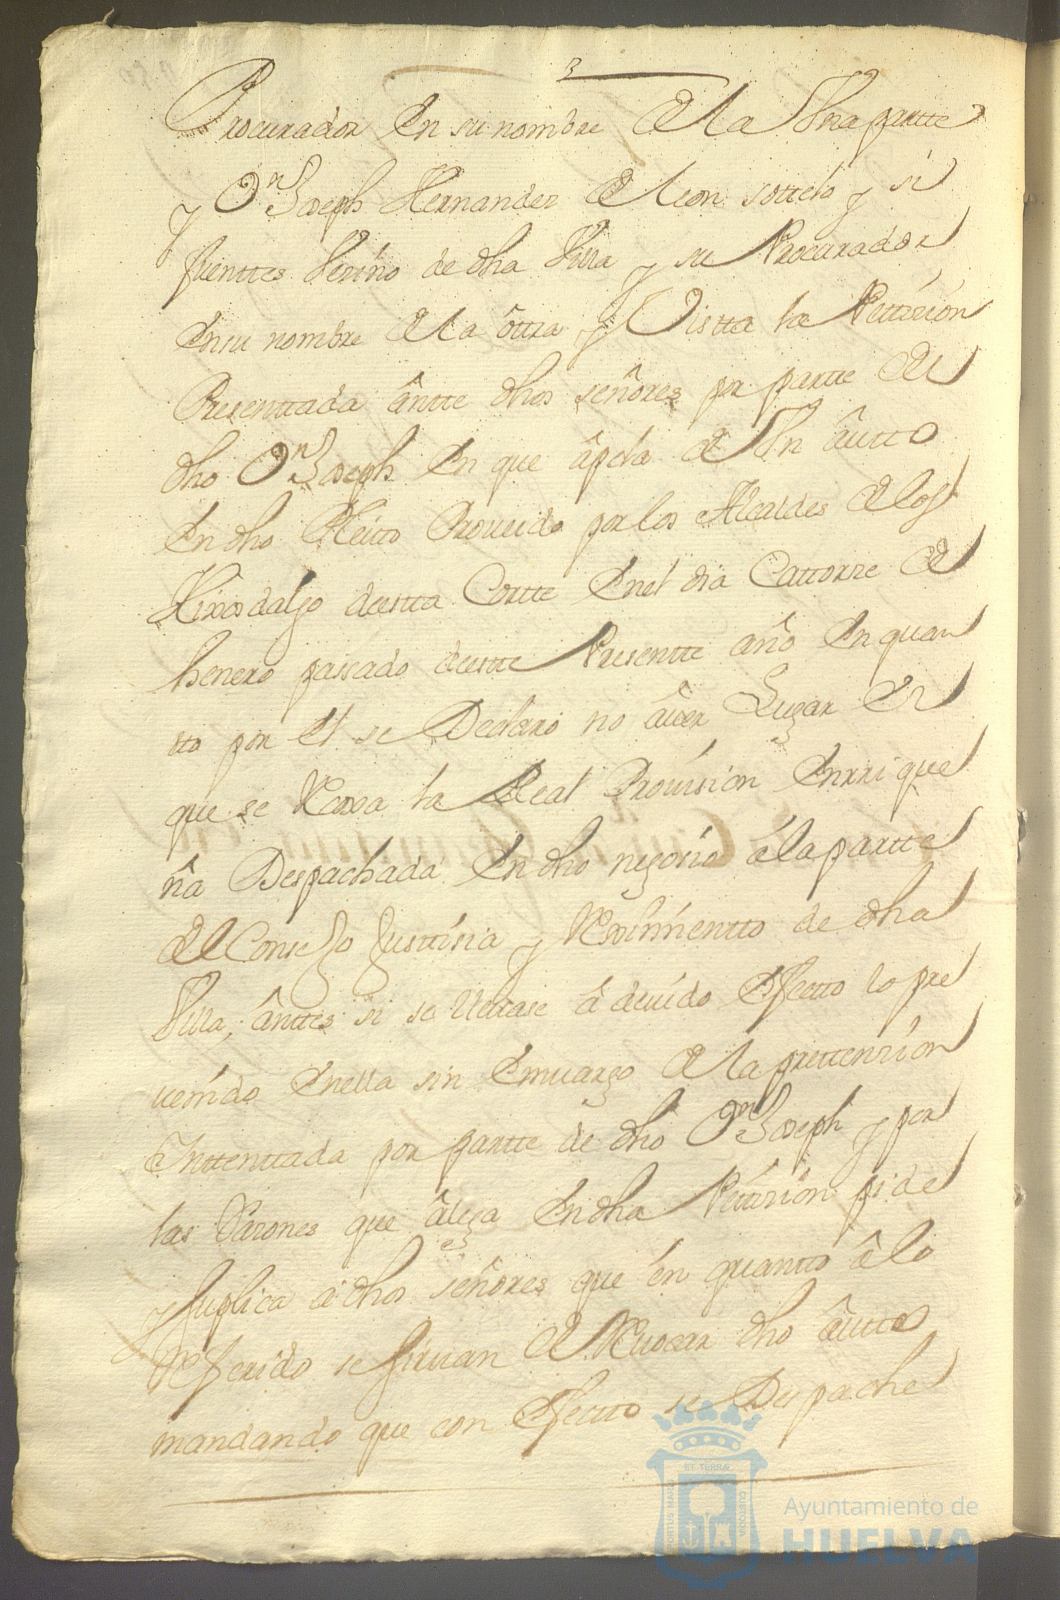 Procurador en su nombre de la Una partte
y Dn Joseph Hernandez de leon sottelo y si
fuenttes Vezino de dha Villa y su Procurador
en su nombre de la ôttra y Vistta la Petizion
Presenttada ântte dhos señores por partte de
dho Dn Joseph en que âpela de Un âutto
en dho Pleitto Proueido por los Alcaldes de los
Hixosdalgo destta Cortte en el dia Cattorze de
henero passado destte Presentte año en quan
tto por el se Declaro no âuer Lugar en
que se Recoxa la Real Prouision enrrique
ña Despachada en dho negozio â la partte
del Consejo Justtisia y Reximientto de dha
Villa, ânttes si se lleuase â deuido efectto lo pre
uenido en ella sin emuargo de la prettenzion
Inttenttada por partte de dho Dn Joseph y por
las Razones que âlega en dha Petizion pide
y suplica â dhos señores que en quantto â lo
Referido se siruan de Reuocar dho âutto
mandando que con efectto se Despache
Ayuntamiento de
HUELVA